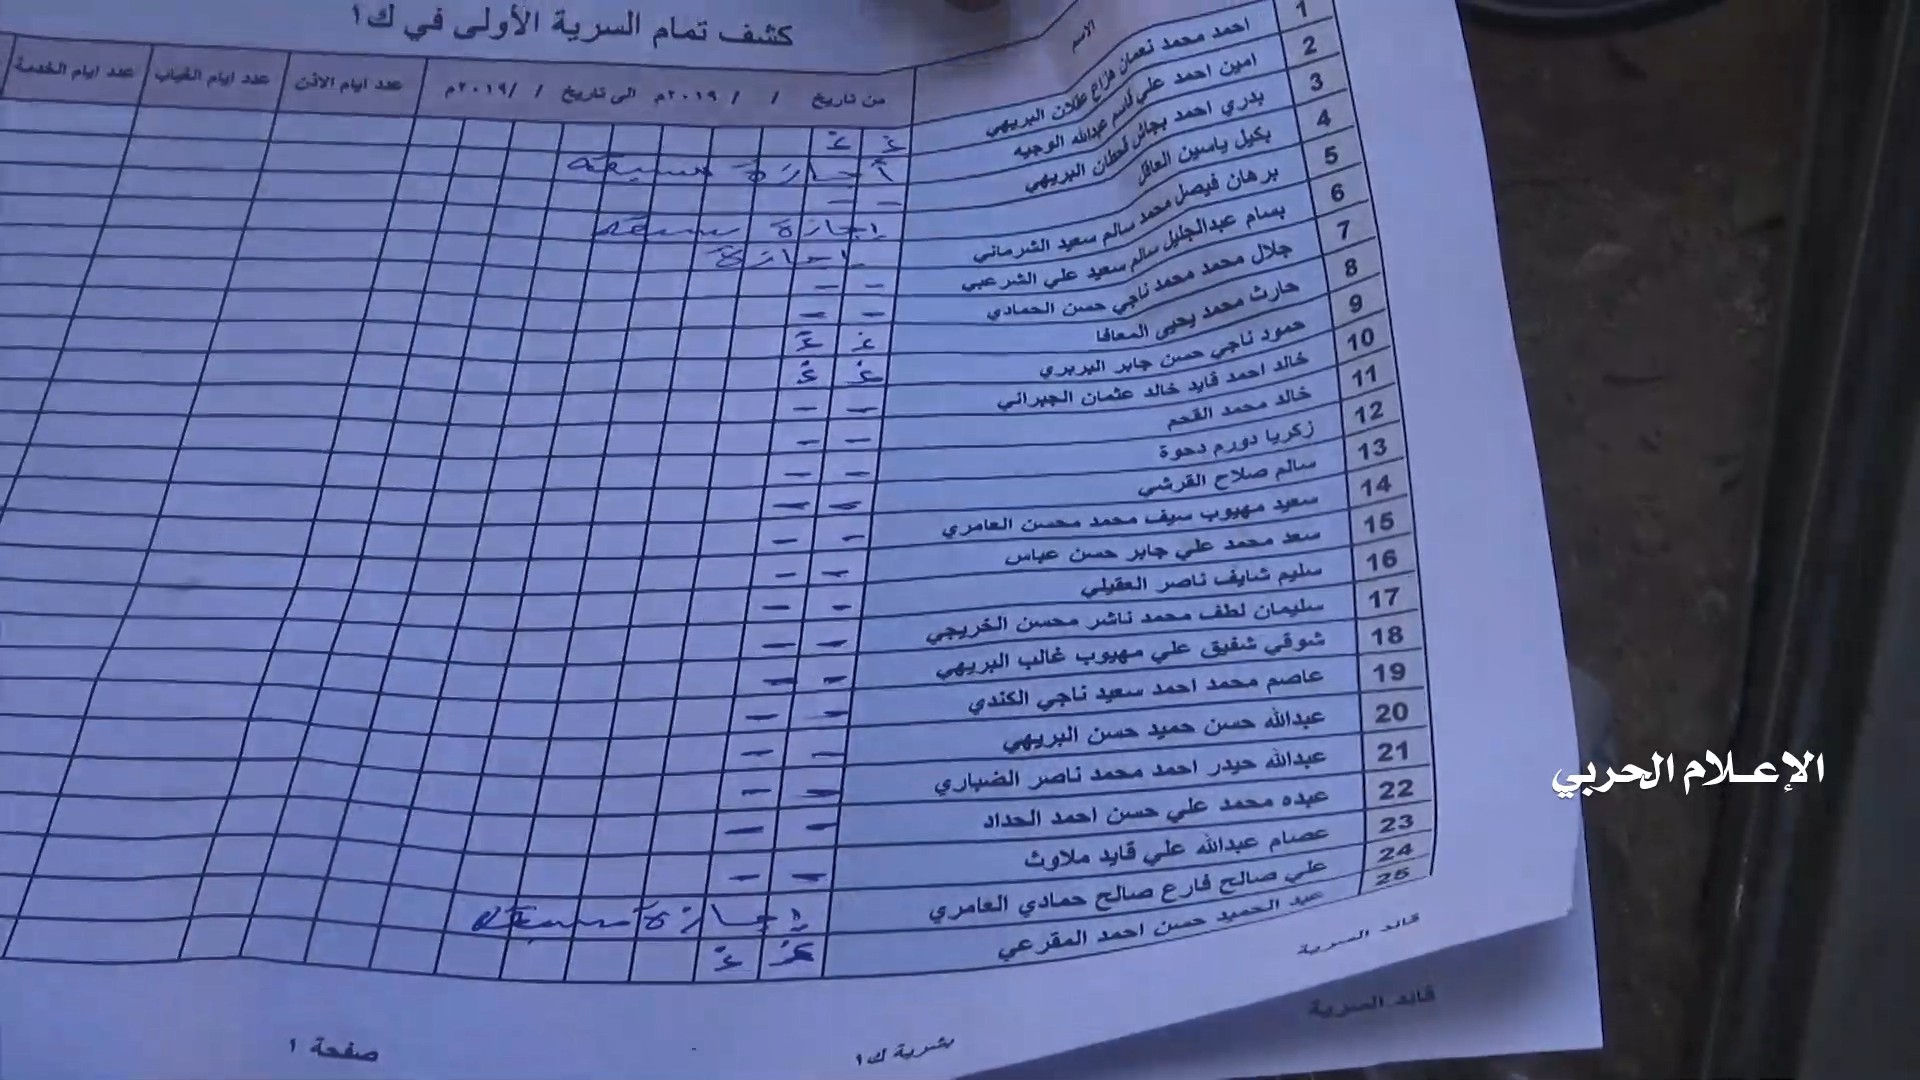 كشف تمام السرية الأولى في ك١
الاسم
من تاريخ / / ٢٠١٩م الى تاريخ / / ٢٠١٩م
عدد ايام الاذن
عدد ايام الغياب
عدد ايام الخدمة
1 احمد محمد نعمان هزاع عقلان البريهي غ غ
2 امين احمد علي قاسم عبدالله الوجيه
3 بدري احمد بجاش قحطان البريهي - -
4 بكيل ياسين العاقل إجازة
5 برهان فيصل محمد سالم سعيد الشرماني إجازة
6 بسام عبدالجليل سالم سعيد علي الشرعبي - -
7 جلال محمد محمد ناجي حسن الحمادي - -
8 حارث محمد يحيى المعافا غ غ
9 حمود ناجي حسن جابر البربري غ غ
10 خالد احمد قايد خالد عثمان الجبراني - -
11 خالد محمد القحم - -
12 زكريا دورم دحوة - -
13 سالم صلاح القرشي - -
14 سعيد مهيوب سيف محمد محسن العامري - -
15 سعد محمد علي جابر حسن عباس - -
16 سليم شايف ناصر العقيلي - -
17 سليمان لطف محمد ناشر محسن الخريجي - -
18 شوقي شفيق علي مهيوب غالب البريهي - -
19 عاصم محمد احمد سعيد ناجي الكندي - -
20 عبدالله حسن حميد حسن البريهي - -
21 عبدالله حيدر احمد محمد ناصر الضباري - -
22 عبده محمد علي حسن احمد الحداد - -
23 عصام عبدالله علي قايد ملاوث - -
24 علي صالح فارع صالح حمادي العامري إجازة
25 عبد الحميد حسن احمد المقرعي غ غ
قائد السرية
قائد السرية
بشرية ك١
صفحة ١
الإعلام الحربي